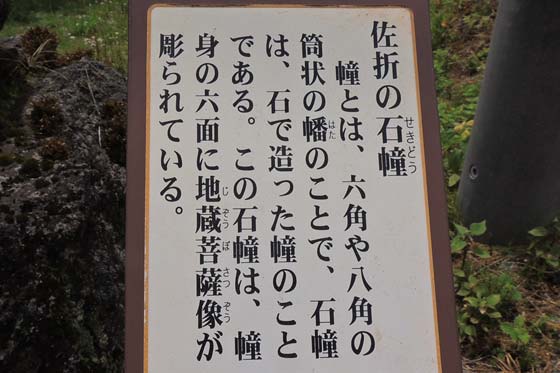 佐折の石幢
せきどう
幢とは、六角や八角の
筒状の幡のことで、石幢
はた
は、石で造った幢のこと
である。この石幢は、幢
身の六面に地蔵菩薩像が
じぞうぼさつぞう
彫られている。